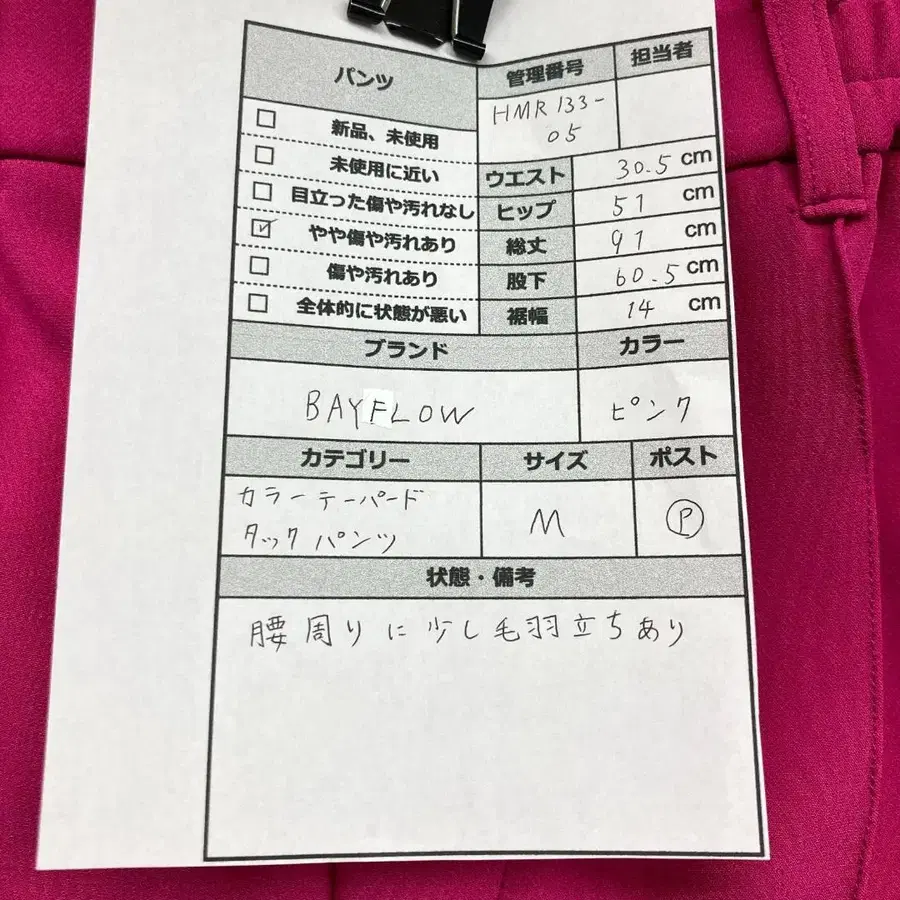 パンツ
管理番号
担当者
HMR 133-
05
新品、未使用
未使用に近い
目立った傷や汚れなし
やや傷や汚れあり
傷や汚れあり
全体的に状態が悪い
ウエスト 30.5 cm
ヒップ 51 cm
総丈 91 cm
股下 60.5 cm
裾幅 14 cm
ブランド
カラー
BAYFLOW
ピンク
カテゴリー
サイズ
ポスト
カラーテーパード
タックパンツ
M
Ⓟ
状態・備考
腰周りに少し毛羽立ちあり